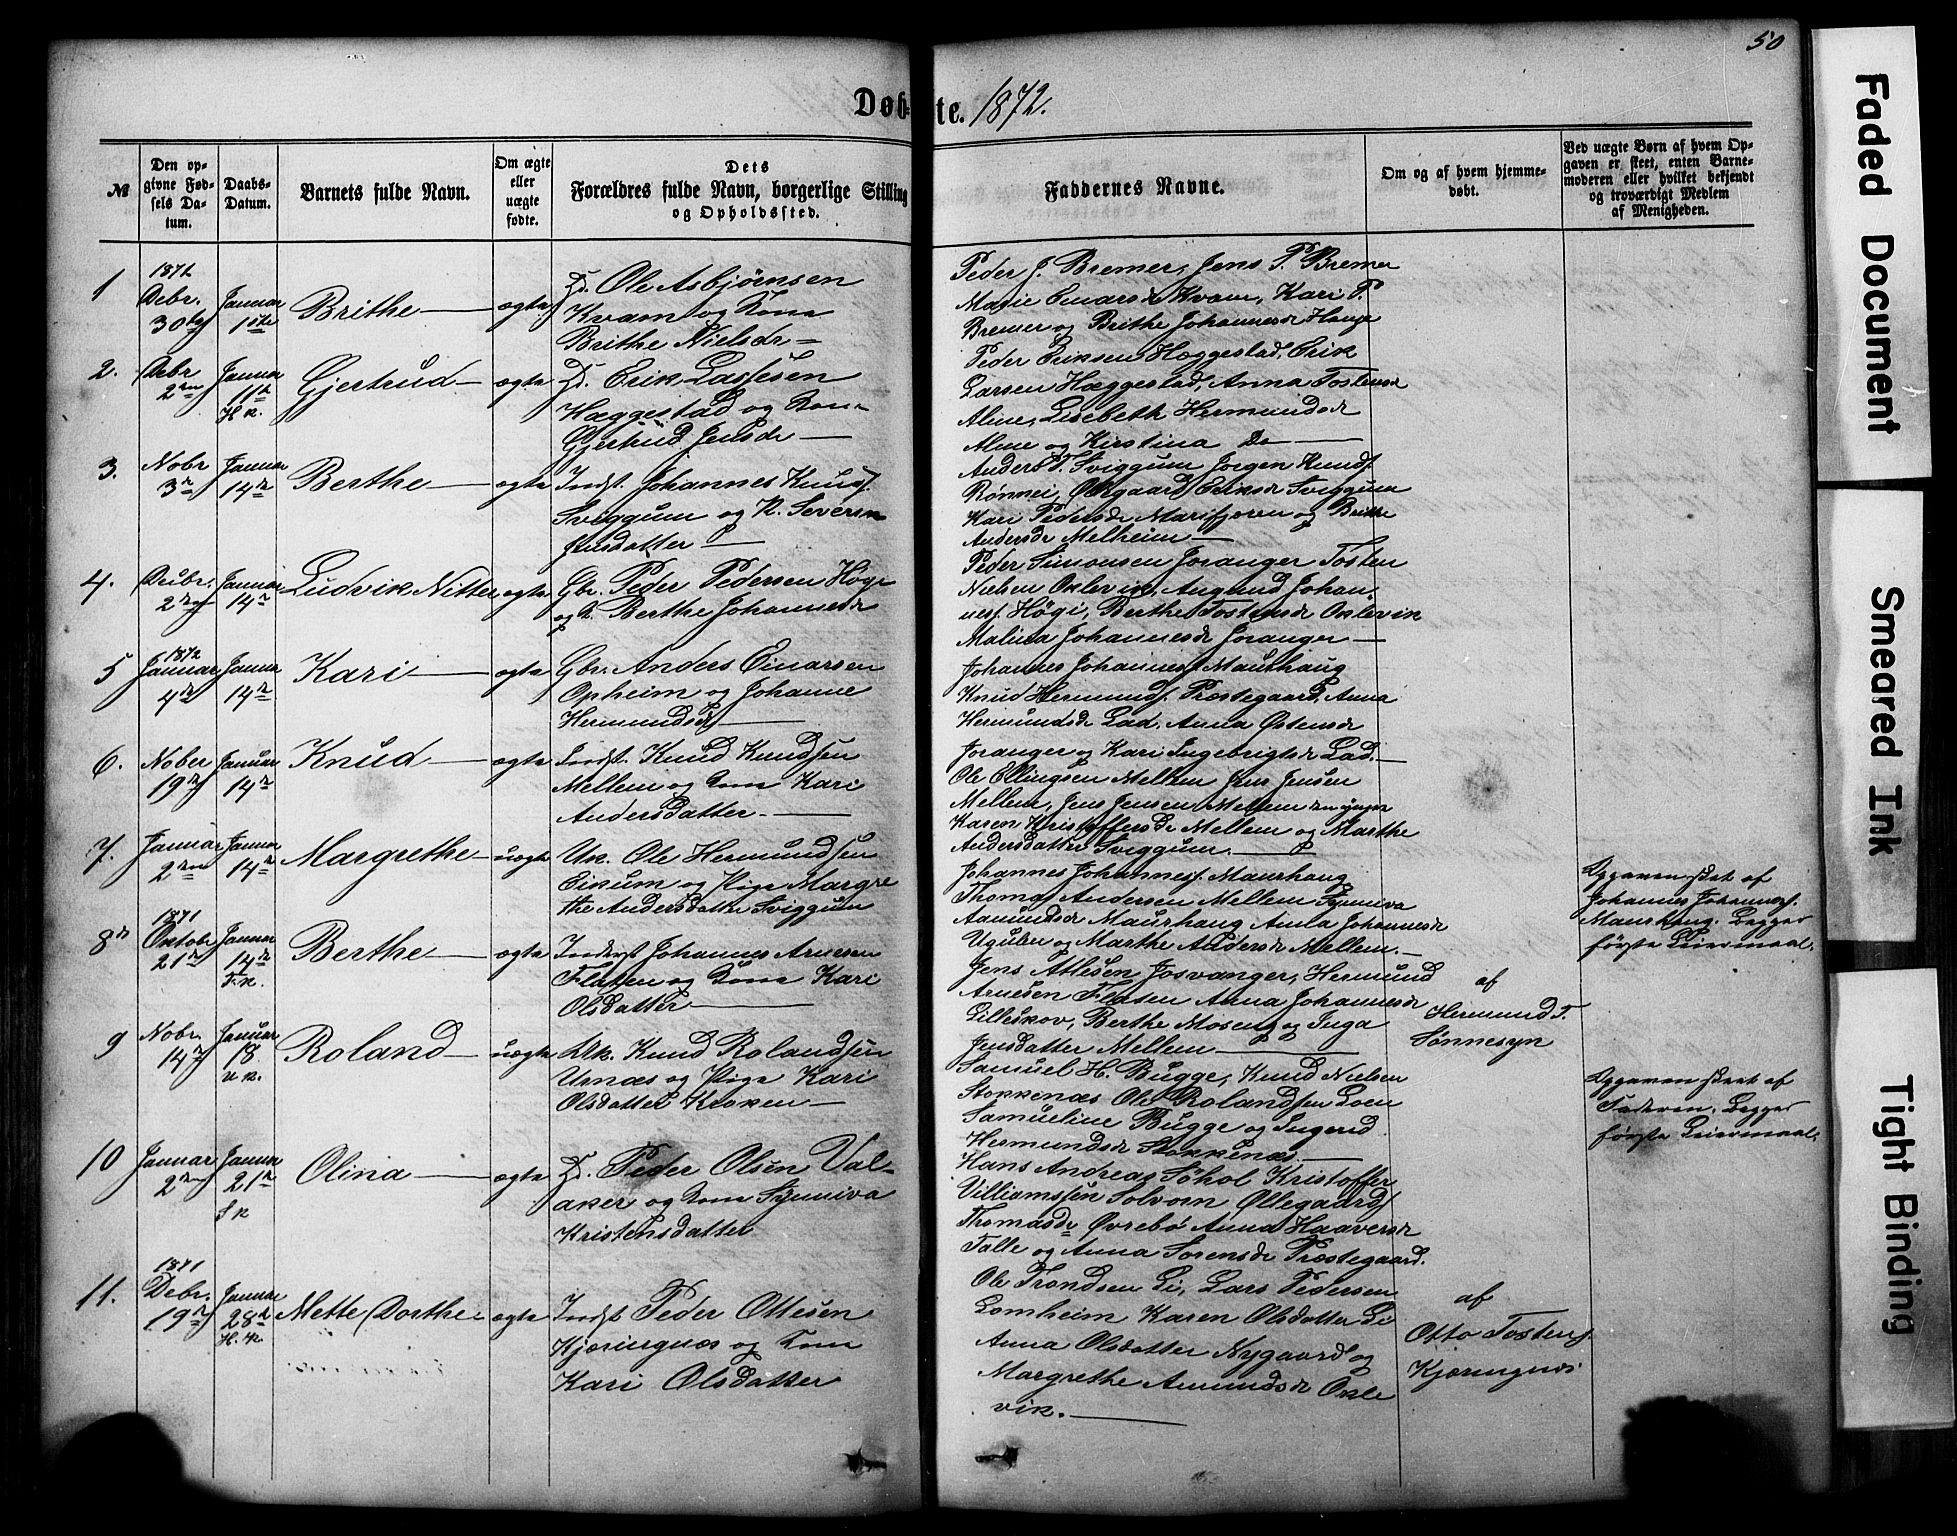 50
Døbte. 1872.
№
Den op-
givne Fød-
sels Da-
tum.
Daabs-
Datum.
Barnets fulde Navn.
Om ægte
eller
uægte
fødte.
Dets
Forældres fulde Navn, borgerlige Stilling
og Opholdssted.
Faddernes Navne.
Om og af hvem hjemme-
døbt.
Ved uægte Børn af hvem Op-
gaven er skeet, enten Barne-
moderen eller hvilket bekjendt
og troværdigt Medlem
af Menigheden.
1
1871
Debr.
30
Januar
1
Brithe
ægte
Ole Asbjönsen
Kvam og Kone
Brithe Nielsdr
Peder J. Bremer, Jens P. Bremer
Marie Einarsdr Kvam, Kari P.
Bremer og Brithe Johannesdr Hauge
2.
Debr
2
Januar
11
H k.
Gjertrud
ægte
Erik Lassesen
Hæggestad og Kone
Gjertrud Jensdr
Peder Eriksen Hæggestad, Erik
Larsen Hæggestad, Anna Tostensdr
Alme, Lisebeth Hermundsdr
Alme og Kirstina Do
3.
Nobr
3
Januar
14
Berthe
ægte
Indst. Johannes Knuds.
Sviggum og K. Severine
Jensdatter
Anders T. Sviggum Jørgen Knuds.
Rönnei, Ølegaard Eriksdr Sviggum
Kari Pedersdr Marifjøren og Brithe
Andersdr Melheim
4.
Debr.
2
Januar
14
Ludvik Nitter
ægte
Gbr. Peder Pedersen Høgi
og K. Berthe Johannesdr
Peder Simonsen Joranger Tosten
Nielsen Oxlevik, Amund Johan-
nes. Högi, Berthe Tostensdr Oxlevik
Malina Johannesdr Joranger
5
1872
Januar
4
Januar
14
Kari
ægte
Gbr. Anders Einarsen
Opheim og Johanne
Hermundsdr
Johannes Johannes. Maurhaug
Knud Hermunds. Præstegaard, Anna
Hermundsdr Lad, Anna Østensdr
Joranger og Kari Ingebrigtsdr Lad.
6.
Nober
19
Januar
14
Knud
ægte
Indst. Knud Knudsen
Mellem og Kone Kari
Andersdatter.
Ole Ellingsen Mellem Jens Jensen
Mellem, Jens Jensen Mellem den yngre
Karen Kristoffersdr Mellem og Marthe
Andersdatter Sviggum.
7.
Januar
2
Januar
14
Margrethe
uægte
Uk. Ole Hermundsen
Eikum og Pige Margre
the Andersdatter Sviggum
Johannes Johannes. Maurhaug
Thomas Andersen Mellem Synneva
Aamundsdr Maurhaug Anna Johannesdr
Ugulen og Marthe Andersdr Mellem.
Opgaven skeet af
Johannes Johannes.
Maurhaug. Begges
første Leiermaal.
8
1871
Oktobr
21
Januar
14
F. k.
Berthe
ægte
Inderst Johannes Arnesen
Flaten og Kone Kari
Olsdatter
Jens Atlesen Josvanger, Hermund
Arnesen Flaten Anna Johannesdr
Lilleskov, Berthe Moseng og Inga
Jensdatter Mellem
af
Hermund T.
Sønnesyn
9
Nobr.
14
Januar
18
U k.
Roland
uægte
Uk. Knud Rolandsen
Urnæs og Pige Kari
Olsdatter Kroken
Samuel H. Bugge, Knud Nielsen
Stokkenæs Ole Rolandsen Loen
Samueline Bugge og Ingerid
Hermundsdr Stokkenæs
Opgaven skeet af
Faderen. Begges
første Leiermaal.
10
Januar
2
Januar
21
S k
Olina
ægte
Peder Olsen Val-
aker og Kone Synniva
Kristensdatter
Hans Andreas Söhol Kristoffer
Villiamssen Solvorn Øllegaard
Thomasdr Øvrebö Anna Haaversdr
Talle og Anna Sorensdr Præstegaard.
11.
1871
Debr.
19
Januar
28
H. k
Mette Dorthe
ægte
Indst Peder Ottesen
Kjæringnæs og Kone
Kari Olsdatter
Ole Trondsen Li, Lars Pedersen
Lomheim Karen Olsdatter Li
Anna Olsdatter Nygaard og
Margrethe Amundsdr Oxle
vik.
af
Otto Tostens.
Kjæringnæs
Faded Document
Smeared Ink
Tight Binding